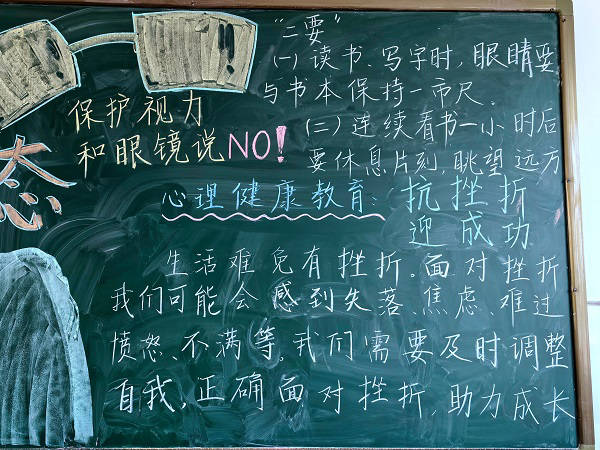 “二要”
(一)读书、写字时,眼睛要
与书本保持一市尺。
(二)连续看书一小时后
要休息片刻,眺望远方
保护视力
和眼镜说NO!
态
心理健康教育:抗挫折
迎成功
生活难免有挫折。面对挫折
我们可能会感到失落、焦虑、难过
愤怒、不满等。我们需要及时调整
自我,正确面对挫折,助力成长